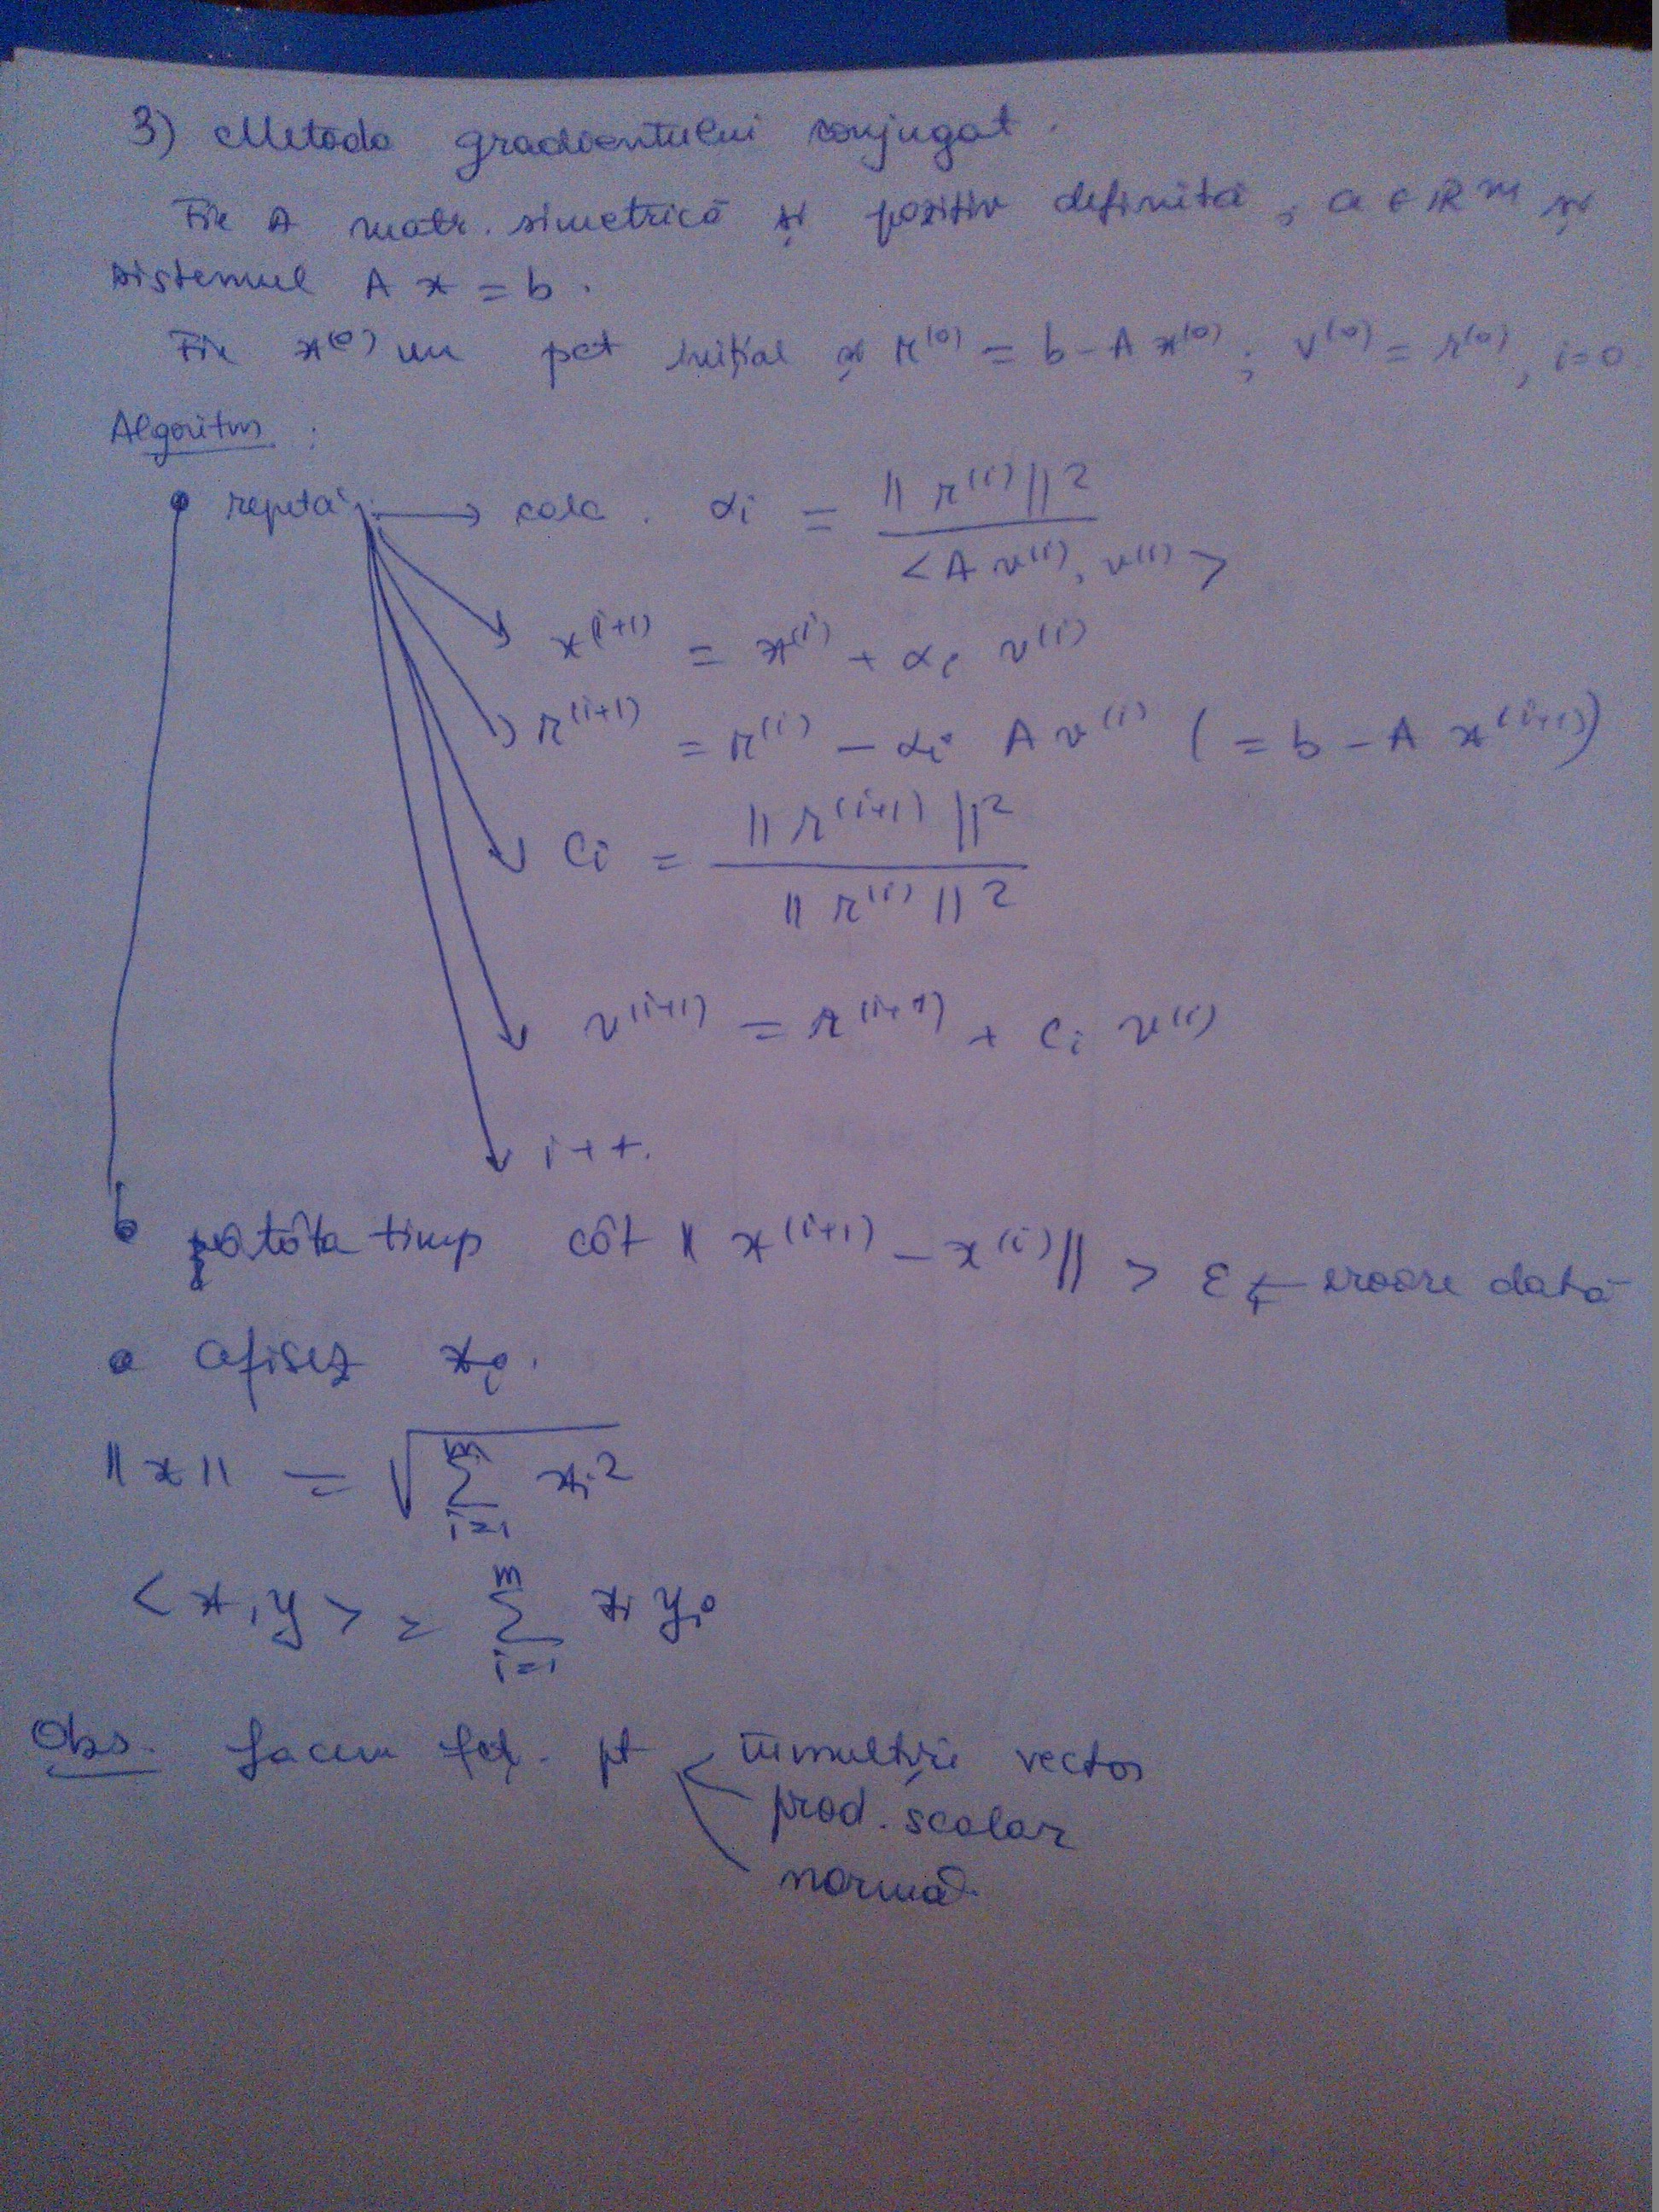 3) Metoda gradientului conjugat.
Fie A matr. simetrică și pozitiv definită, a ∈ ℝ^m și
sistemul A x = b.
Fie x^(0) un pct inițial și r^(0) = b - A x^(0); v^(0) = r^(0), i=0
Algoritm :
repetă → calc. αi = ||r^(i)||² / <A v^(i), v^(i)>
x^(i+1) = x^(i) + αi v^(i)
r^(i+1) = r^(i) - αi A v^(i) (= b - A x^(i+1))
Ci = ||r^(i+1)||² / ||r^(i)||²
v^(i+1) = r^(i+1) + Ci v^(i)
i++.
atâta timp cât ||x^(i+1) - x^(i)|| > ε ← eroare dată
afișez xi.
||x|| = √(∑_{i=1}^{m} xi²)
<x,y> = ∑_{i=1}^{m} xi yi
Obs. facem fct. pt înmulțire vector
prod. scalar
normă.